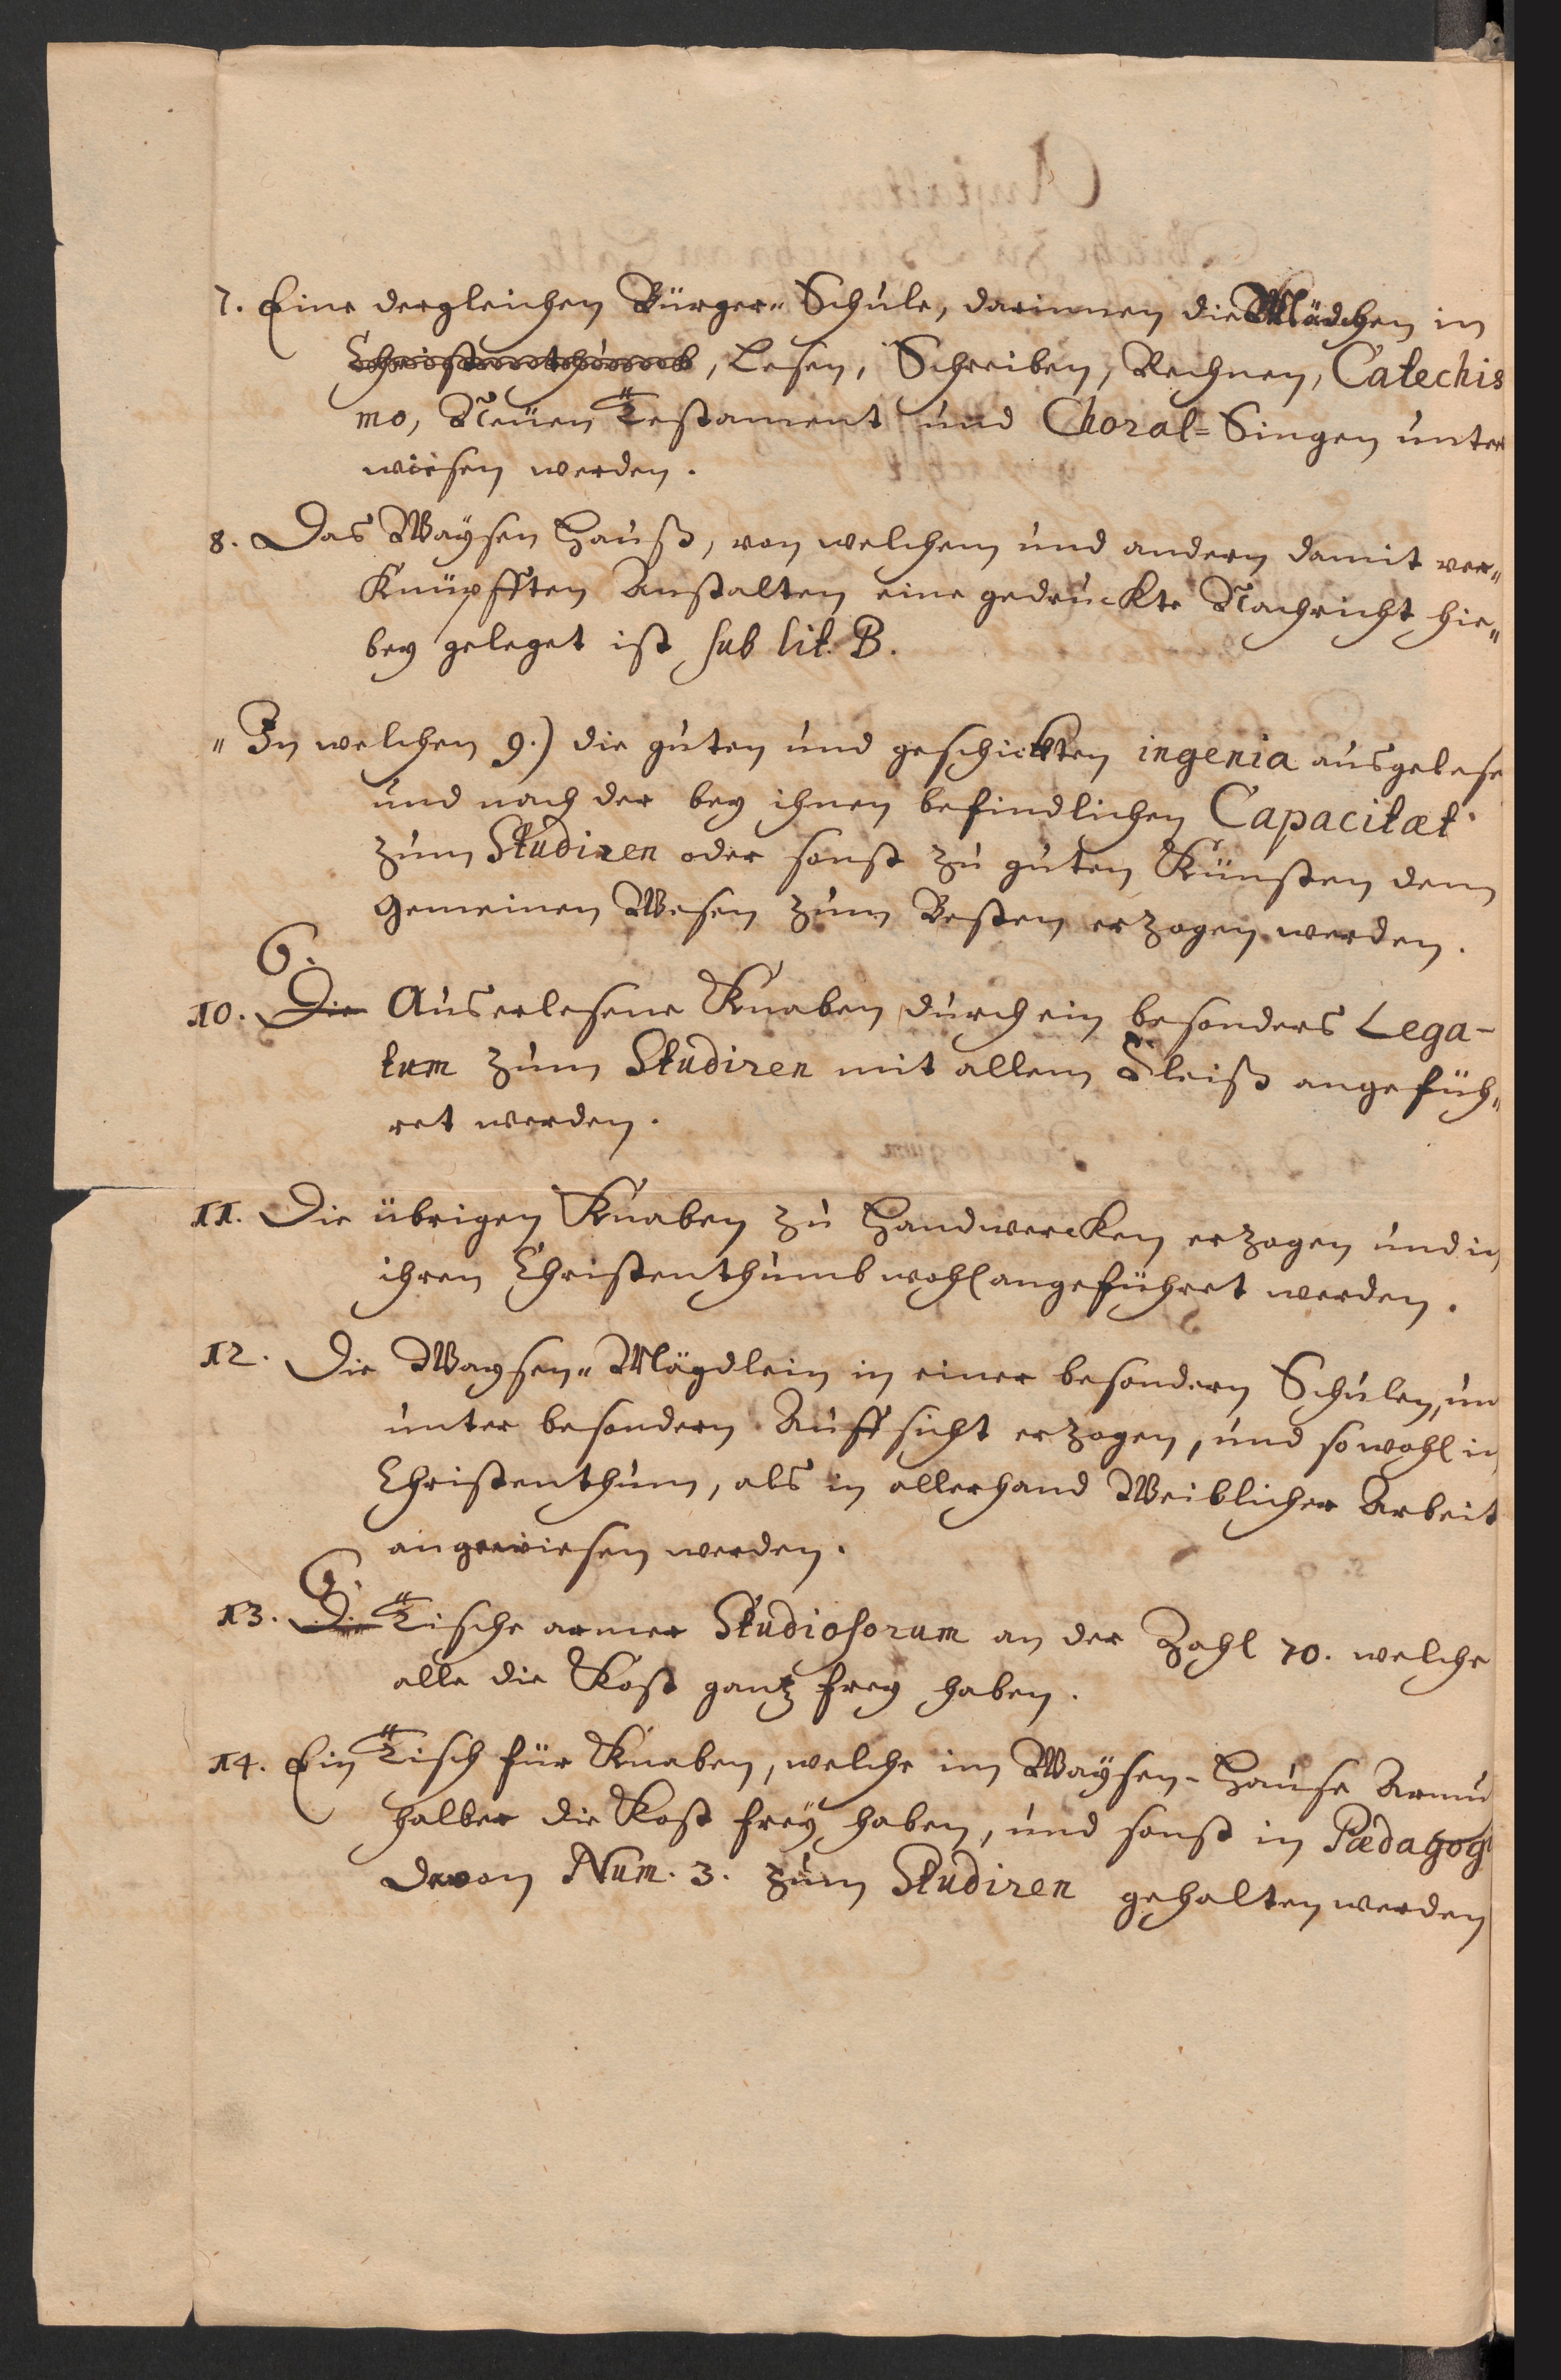 7. Eine dergleichen Bürger-Schule, darinnen die Mädchen in
Christenthumb, Lesen, Schreiben, Rechnen, Catechis
mo, Neüen Testament und Choral-Singen unter
wiesen werden.
8. Das Waysen Hauß, von welchem und andern damit ver-
Knüpfften Anstalten eine gedruckte Nachricht hie-
bey geleget ist sub lit. B.
" In welchen 9.) die guten und geschickten ingenia ausgelese
und nach der bey ihnen befindlichen Capacitæt
zum Studiren oder sonst zu guten Künsten dem
Gemeinen Wesen zum Besten erzogen werden.
6.
10. Die Auserlesene Knaben durch ein besonders Lega-
tum zum Studiren mit allem Fleiß angefüh-
ret werden.
11. Die übrigen Knaben zu Handwercken erzogen und in
ihren Christenthumb wohl angeführet werden.
12. Die Waysen-Mägdlein in einer besondern Schulen, un
unter besondern Auffsicht erzogen, und sowohl in
Christenthum, als in allerhand Weiblicher Arbeit
angewiesen werden.
6.
13. Die Tische armer Studiosorum an der Zahl 70. welche
alle die Kost gantz frey haben.
14. Ein Tisch für Knaben, welche im Waysen-Hause Armu
halber die Kost freÿ haben, und sonst in Pædagog
davon Num. 3. zum Studiren gehalten werden